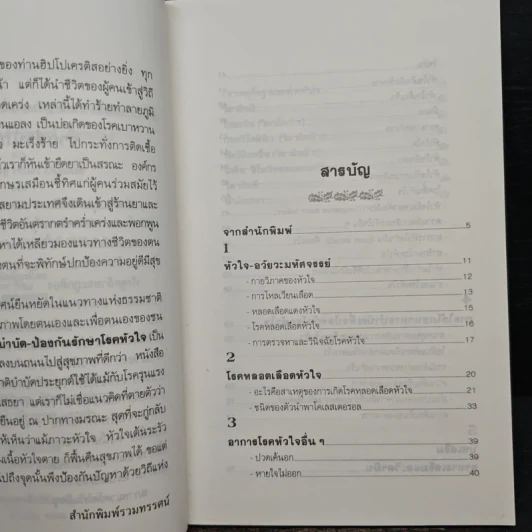 ของท่านฮิปโปเครติสอย่างยิ่ง ทุก
แต่ก็ได้นำชีวิตของผู้คนเข้าสู่วิถี
เหล่านี้ได้ทำร้ายทำลายภูมิ
เป็นบ่อเกิดของโรคเบาหวาน
มะเร็งร้าย ไปกระทั่งการติดเชื้อ
เราก็หันเข้ายึดยาเป็นสรณะ องค์กร
เสมือนชี้ทิศแก่ผู้คนร่วมสมัยไว้
สยามประเทศจึงเดินเข้าสู่ร้านยาและ
ชีวิตอันตรากตรำคร่ำเคร่งและพอกพูน
ได้เหลียวมองแนวทางชีวิตของตน
ตนที่จะพิทักษ์ปกป้องความอยู่ดีมีสุข
ยืนหยัดในแนวทางแห่งธรรมชาติ
ภาพโดยตนเองและเพื่อตนเองของชน
บำบัด-ป้องกันรักษาโรคหัวใจ เป็น
ลงบนถนนไปสู่สุขภาพที่ดีกว่า หนังสือ
บำบัดประยุกต์ใช้ได้แม้กับโรครุนแรง
แต่เราก็ไม่เชื่อแนวคิดที่ตายตัวว่า
ยืนอยู่ ณ ปากทางมรณะ สุดที่จะกู่กลับ
ให้เห็นว่าแม้ภาวะหัวใจ หัวใจเต้นระรัว
เนื้อหัวใจตาย ก็ฟื้นคืนสุขภาพได้ ขอแต่
ไปถึงจุดนั้นพึงป้องกันปัญหาด้วยวิถีแห่ง
สำนักพิมพ์รวมทรรศน์
สารบัญ
จากสำนักพิมพ์ 5
1
หัวใจ-อวัยวะมหัศจรรย์ 11
- กายวิภาคของหัวใจ 12
- การไหลเวียนเลือด 13
- หลอดเลือดแดงหัวใจ 15
- โรคหลอดเลือดหัวใจ 16
- การตรวจหาและวินิจฉัยโรคหัวใจ 17
2
โรคหลอดเลือดหัวใจ 20
- อะไรคือสาเหตุของการเกิดโรคหลอดเลือดหัวใจ 21
- ชนิดของตัวนำพาโคเลสเตอรอล 33
3
อาการโรคหัวใจอื่น ๆ 39
- ปวดเค้นอก 39
- หายใจไม่ออก 40